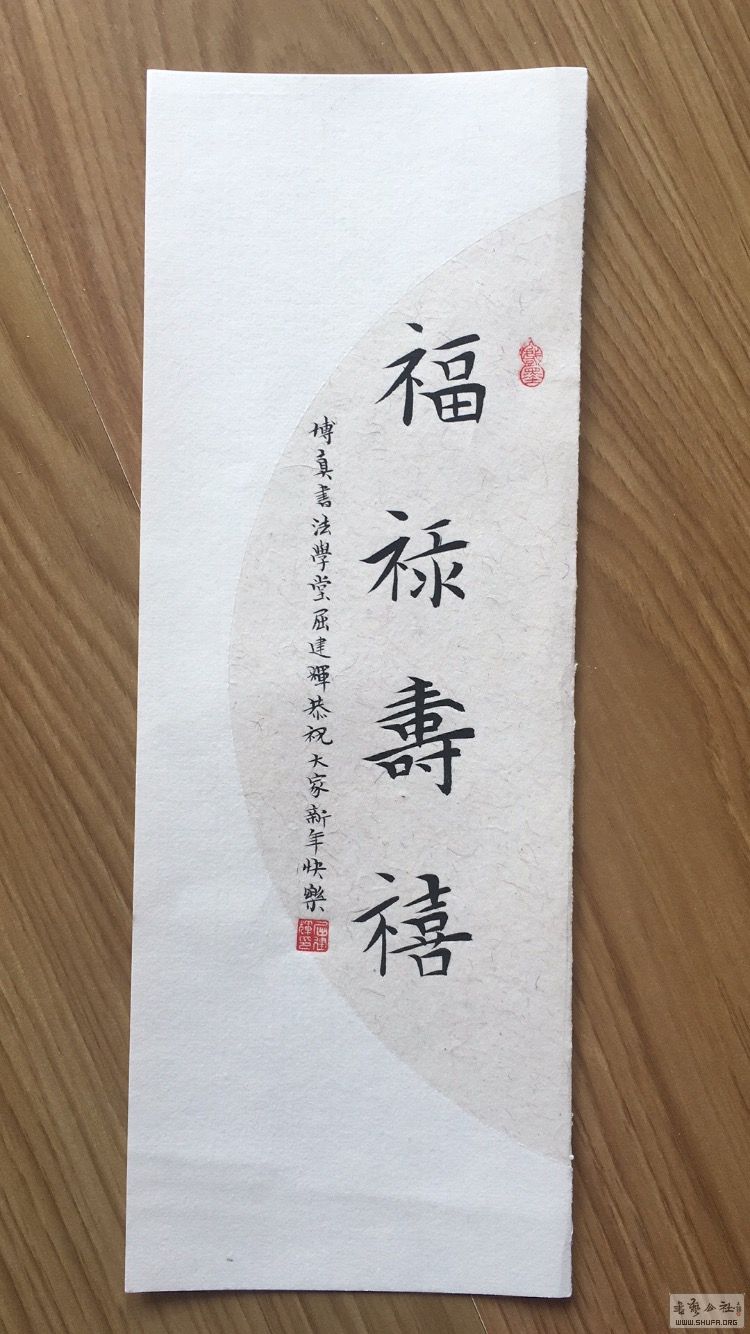 福禄壽禧
博真書法學堂屈建輝恭祝大家新年快樂
屈建輝印
書藝公社
WWW.SHUFA.ORG